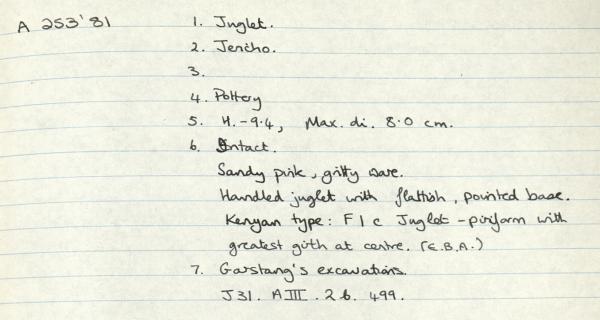 A 253'81
1. Juglet.
2. Jericho.
3.
4. Pottery
5. H. - 9.4, Max. di. 8.0 cm.
6. Intact.
Sandy pink, gritty ware.
Handled juglet with flattish, pointed base.
Kenyan type: F 1 c Juglet - piriform with
greatest girth at centre. (E.B.A.)
7. Garstang's excavations.
J31. A III. 26. 499.